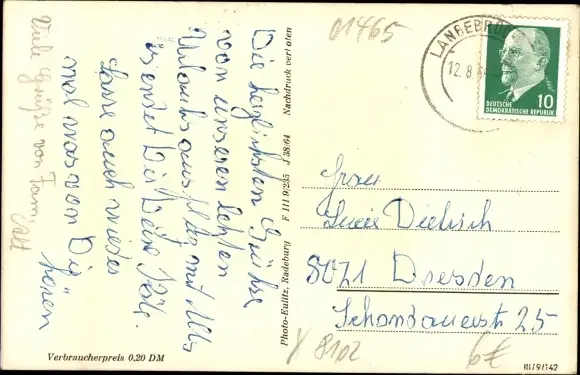 01465
LANGEBRÜCK
12.8.64
DEUTSCHE
DEMOKRATISCHE REPUBLIK
10
Die herzlichsten Grüße
von unserem letzten
Urlaubsausflug mit
sendet Dir Deine
Lasse auch wieder
mal was von Dir
hören
Viele Grüße von Fam.
Photo-Kulitz, Radeburg F III 9/235 J 38/64 Nachdruck verboten
Frau
Lucie Dietrich
8021 Dresden
Schandauerstr 25
8102
6€
Verbraucherpreis 0,20 DM
III/9/142